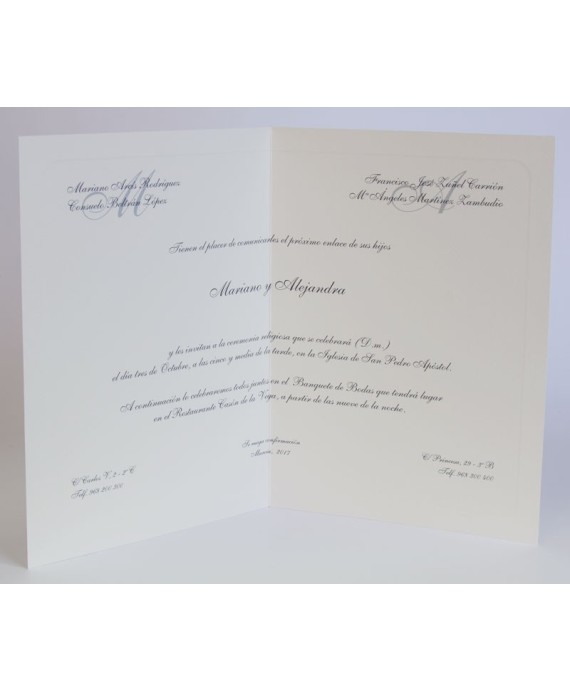 Mariano Arós Rodríguez
Consuelo Beltrán López
M
Francisco José Zanel Carrión
Mª Ángeles Martínez Zambudio
A
Tienen el placer de comunicarles el próximo enlace de sus hijos
Mariano y Alejandra
y les invitan a la ceremonia religiosa que se celebrará (D.m.)
el día tres de Octubre, a las cinco y media de la tarde, en la Iglesia de San Pedro Apóstol.
A continuación lo celebraremos todos juntos en el Banquete de Bodas que tendrá lugar
en el Restaurante Casón de la Vega, a partir de las nueve de la noche.
Se ruega confirmación
Murcia, 2015
C/ Carlos V, 2 - 2º C
Telf. 968 200 200
C/ Princesa, 29 - 2º B
Telf. 968 200 200